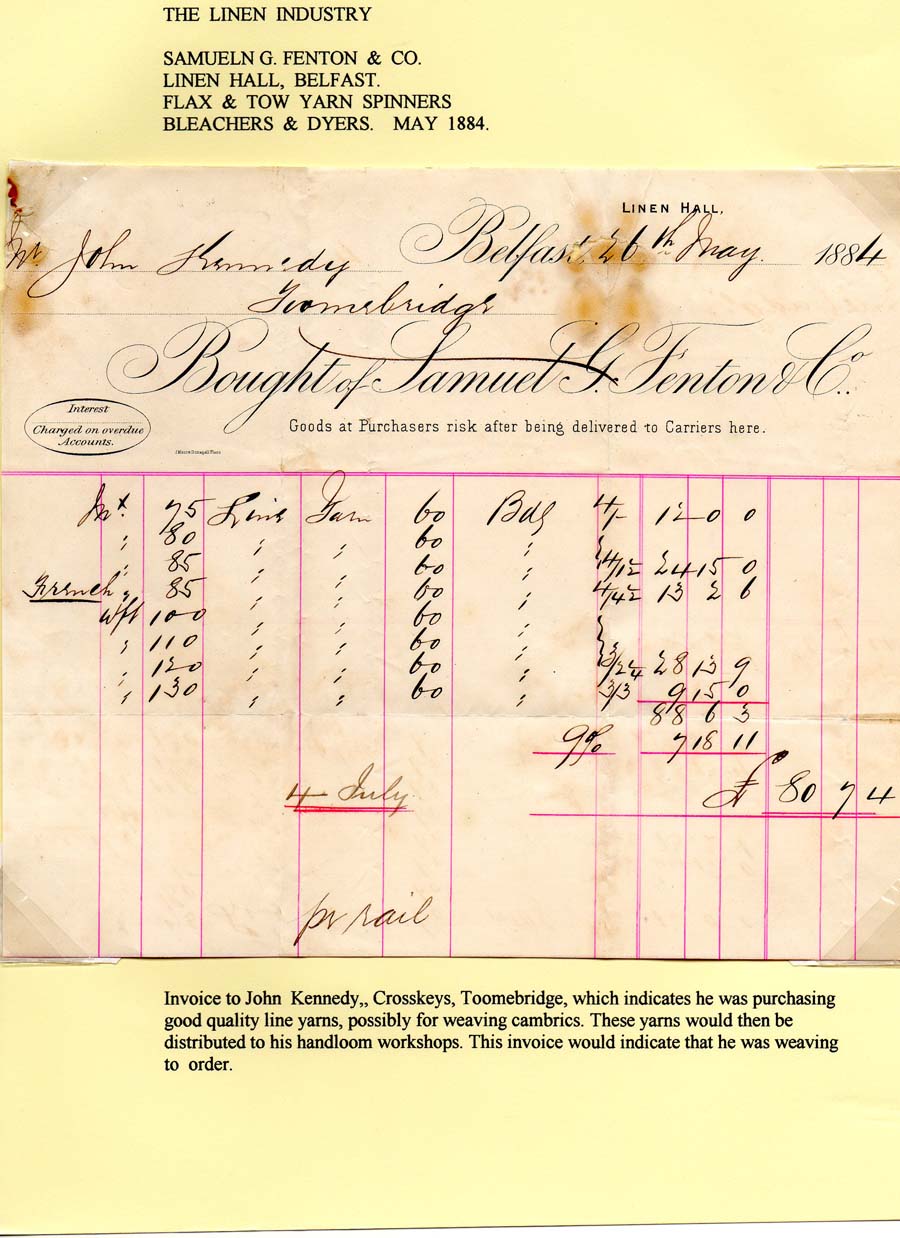 THE LINEN INDUSTRY
SAMUELN G. FENTON & CO.
LINEN HALL, BELFAST.
FLAX & TOW YARN SPINNERS
BLEACHERS & DYERS. MAY 1884.
LINEN HALL,
Mr John Kennedy Belfast, 26th May. 1884
Toomebridge
Bought of Samuel G. Fenton & Co.
Interest
Charged on overdue
Accounts.
Goods at Purchasers risk after being delivered to Carriers here.
75 Line Yarn 60 Bdls 4/- 12 0 0
" 80 " " 60 "
" 85 " " 60 " 4/1½ 24 15 0
French " 85 " " 60 " 4/4½ 13 2 6
Wft 100 " " 60 "
" 110 " " 60 "
" 120 " " 60 " 28 13 9
" 130 " " 60 " 3/3 9 15 0
88 6 3
9% 7 18 11
4 July £ 80 7 4
pr rail
Invoice to John Kennedy,, Crosskeys, Toomebridge, which indicates he was purchasing
good quality line yarns, possibly for weaving cambrics. These yarns would then be
distributed to his handloom workshops. This invoice would indicate that he was weaving
to order.